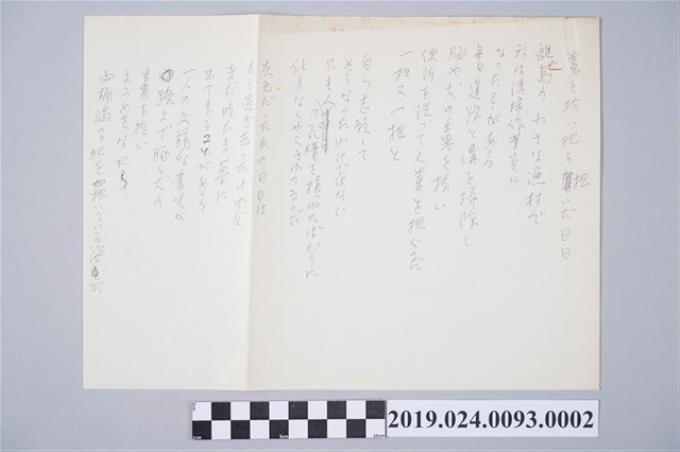 糞を拾い肥を担いだ日日
離島の わさな漁村で
私は清掃作業員に
なったことがある
毎日道路と溝を掃除し
豚や犬の糞を拾い
便所を洗って人糞を担ぐのだ
一担又一担と
自ら志願して
そうなったわけではない
只主人の感情を損ねたばかりに
仕方なくやらされてるのだ
灰色だったあの日日は
もう過ぎ去ったけれど
まだ時たま夢に
出てまうことがある
一人の文弱な書生が
路上で豚と犬の
糞を拾い
よろめきながら
両桶満の肥を担いでいる姿が
2019.024.0093.0002